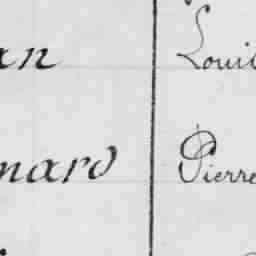 an Loui
nard Pierre